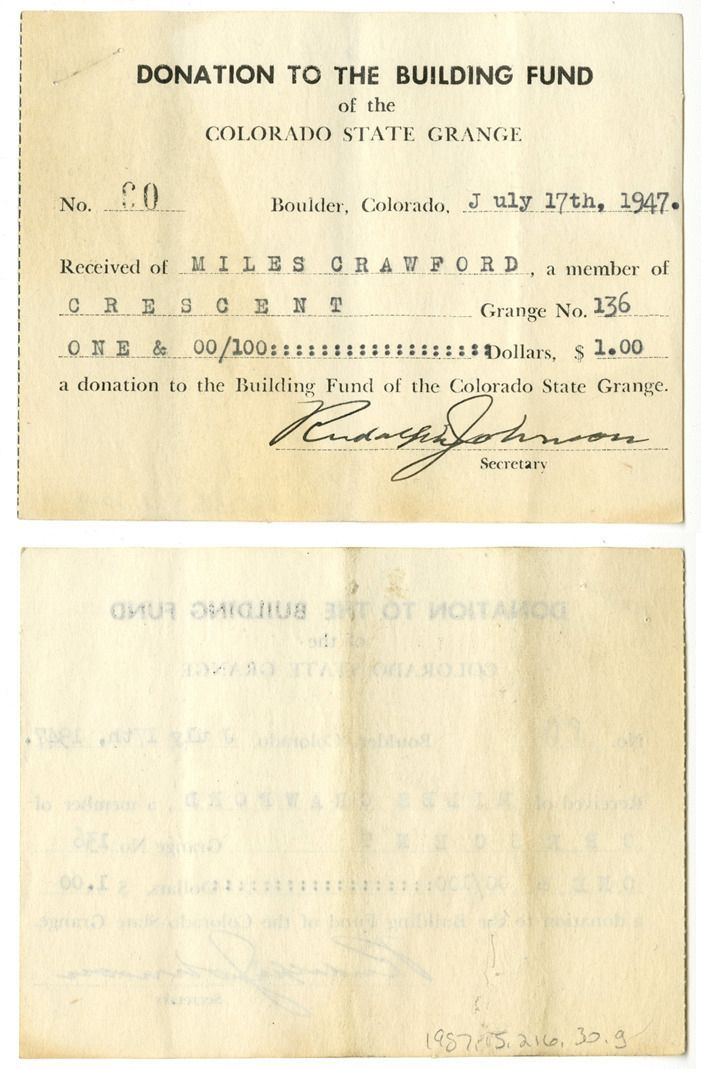 DONATION TO THE BUILDING FUND
of the
COLORADO STATE GRANGE
No. Boulder, Colorado, July 17th, 1947.
Received of MILES CRAWFORD, a member of
CRESCENT Grange No. 136
ONE & 00/100:::::::::::::::::: Dollars, $ 1.00
a donation to the Building Fund of the Colorado State Grange.
Rudolph Johnson
Secretary
1987.05.216.30.9